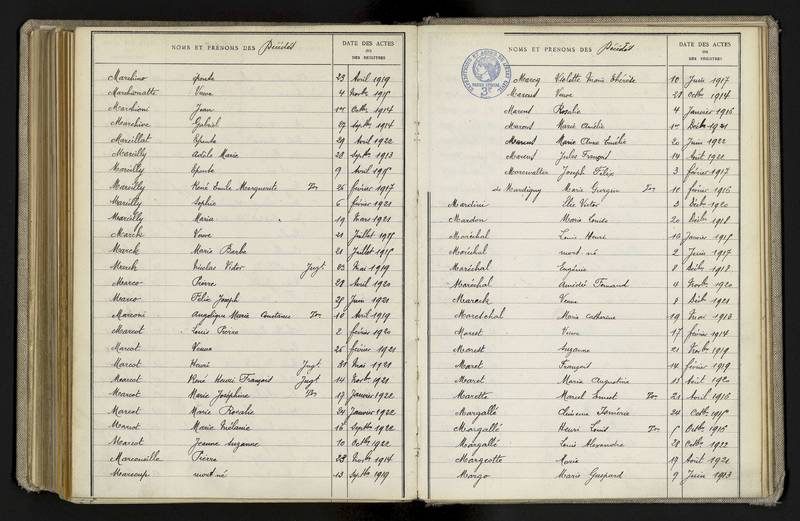 NOMS ET PRÉNOMS DES Décédés
DATE DES ACTES
OU
DES REGISTRES
Marchino Epouse 23 Avril 1919
Marchionatte Veuve 4 Novbre 1915
Marchioni Jean 1er Octbre 1914
Marchive Gabriel 27 Septbre 1914
Mareillat Epouse 29 Avril 1922
Mareilly Adèle Marie 28 Septbre 1913
Mareilly Epouse 9 Avril 1915
Mareilly René Emile Marguerite Don 26 février 1917
Mareilly Sophie 6 février 1921
Mareilly Maria 19 Mars 1921
Marck Veuve 21 Juillet 1915
Marck Marie Barbe 20 Juillet 1915
Marck Nicolas Victor Jugt 23 Mai 1919
Marco Pierre 28 Avril 1920
Marco Félix Joseph 28 Juin 1921
Marconi Angélique Marie Constance 10 Avril 1919
Marcot Louis Pierre 2 février 1920
Marcot Veuve 26 février 1921
Marcot Henri Jugt 31 Mai 1921
Marcot René Henri François Jugt 14 Novbre 1921
Marcot Marie Joséphine 17 Janvier 1922
Marcot Marie Rosalie 24 Janvier 1922
Marcot Marie Mélanie 16 Septbre 1922
Marcot Jeanne Suzanne 10 Octbre 1922
Marcouville Pierre 23 Novbre 1914
Marcoup mort né 13 Septbre 1919
NOMS ET PRÉNOMS DES Décédés
DATE DES ACTES
OU
DES REGISTRES
Marcq Violette Marie Thérèse 10 Juin 1917
Marcus Veuve 28 Octbre 1914
Rosalie 4 Janvier 1916
Marie Amélie 1er Décbre 1921
Marie Anne Emélie 20 Juin 1922
Jules François 14 Août 1921
Joseph Félix 3 février 1917
de Mardigny Marie 11 février 1916
Mardini Elie Victor 3 Décbre 1920
Mardon Marie Louise 20 Décbre 1918
Maréchal Louis Henri 16 Janvier 1915
Maréchal mort-né 2 Juin 1917
Maréchal Eugénie 8 Décbre 1918
Maréchal Amédé Fernand 4 Novbre 1920
Mareck Veuve 8 Décbre 1921
Mareschal Marie Catherine 19 Mai 1916
Marest Veuve 17 février 1914
Marest Suzanne 21 Novbre 1919
Maret François 14 février 1919
Maret Marie Augustine 11 Août 1920
Marette Marcel Ernest 21 Avril 1916
Margallé 24 Octbre 1915
Margallé Henri Louis 5 Octbre 1916
Margallé Louis Alexandre 28 Octbre 1922
Margeotte Marie 17 Août 1921
Margo Marie Gaspard 9 Juin 1913